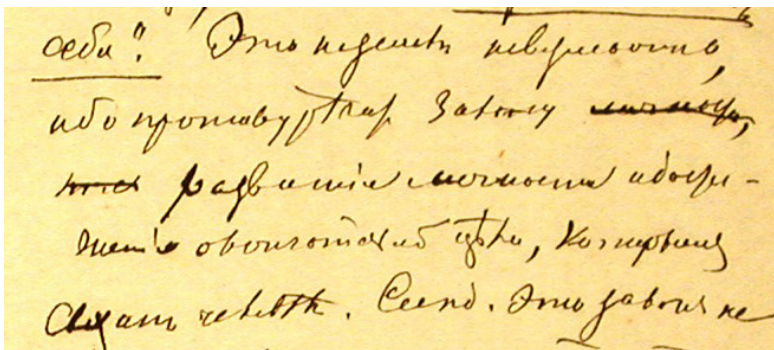 себя". Это на земли невозможно,
ибо противурѣчитъ закону
развитія личности и дости-
женія окончательной цѣли, которымъ
связанъ человѣкъ. Слѣд. это законъ не